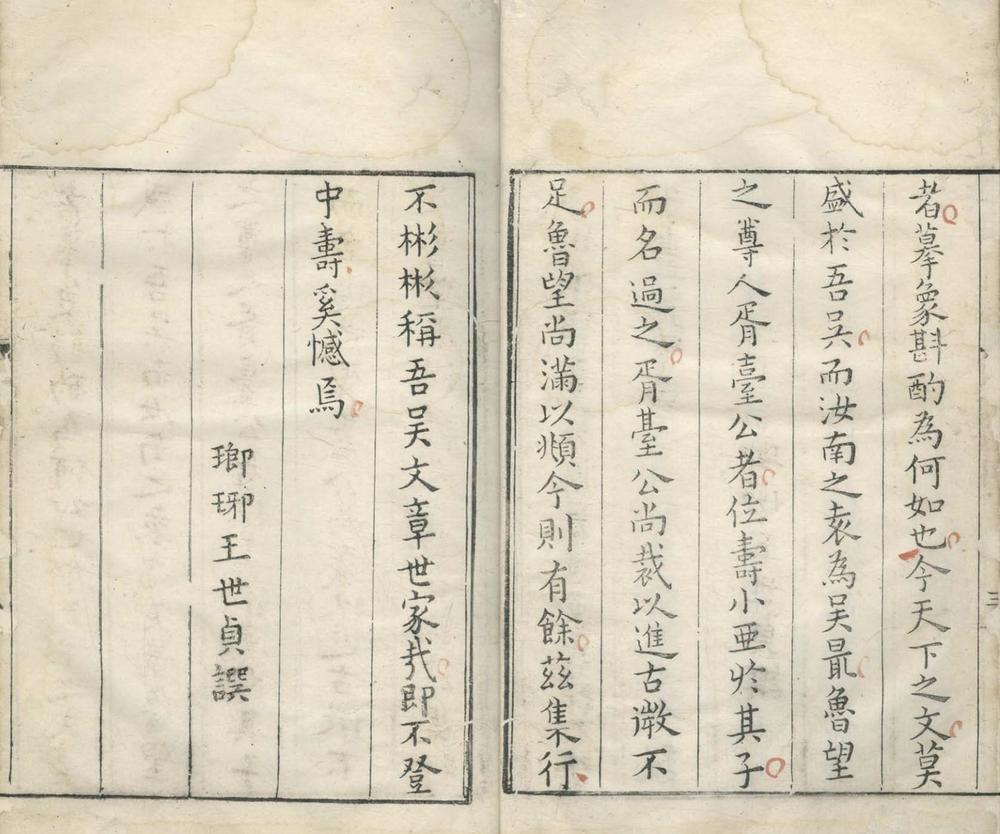 者摹象斟酌為何如也今天下之文莫
盛於吾吳而汝南之袁為吳最魯望
之尊人胥臺公者位壽小亞於其子
而名過之胥臺公尚裁以進古微不
足魯望尚滿以順今則有餘茲集行
不彬彬稱吾吳文章世家哉即不登
中壽奚憾焉
瑯琊王世貞譔